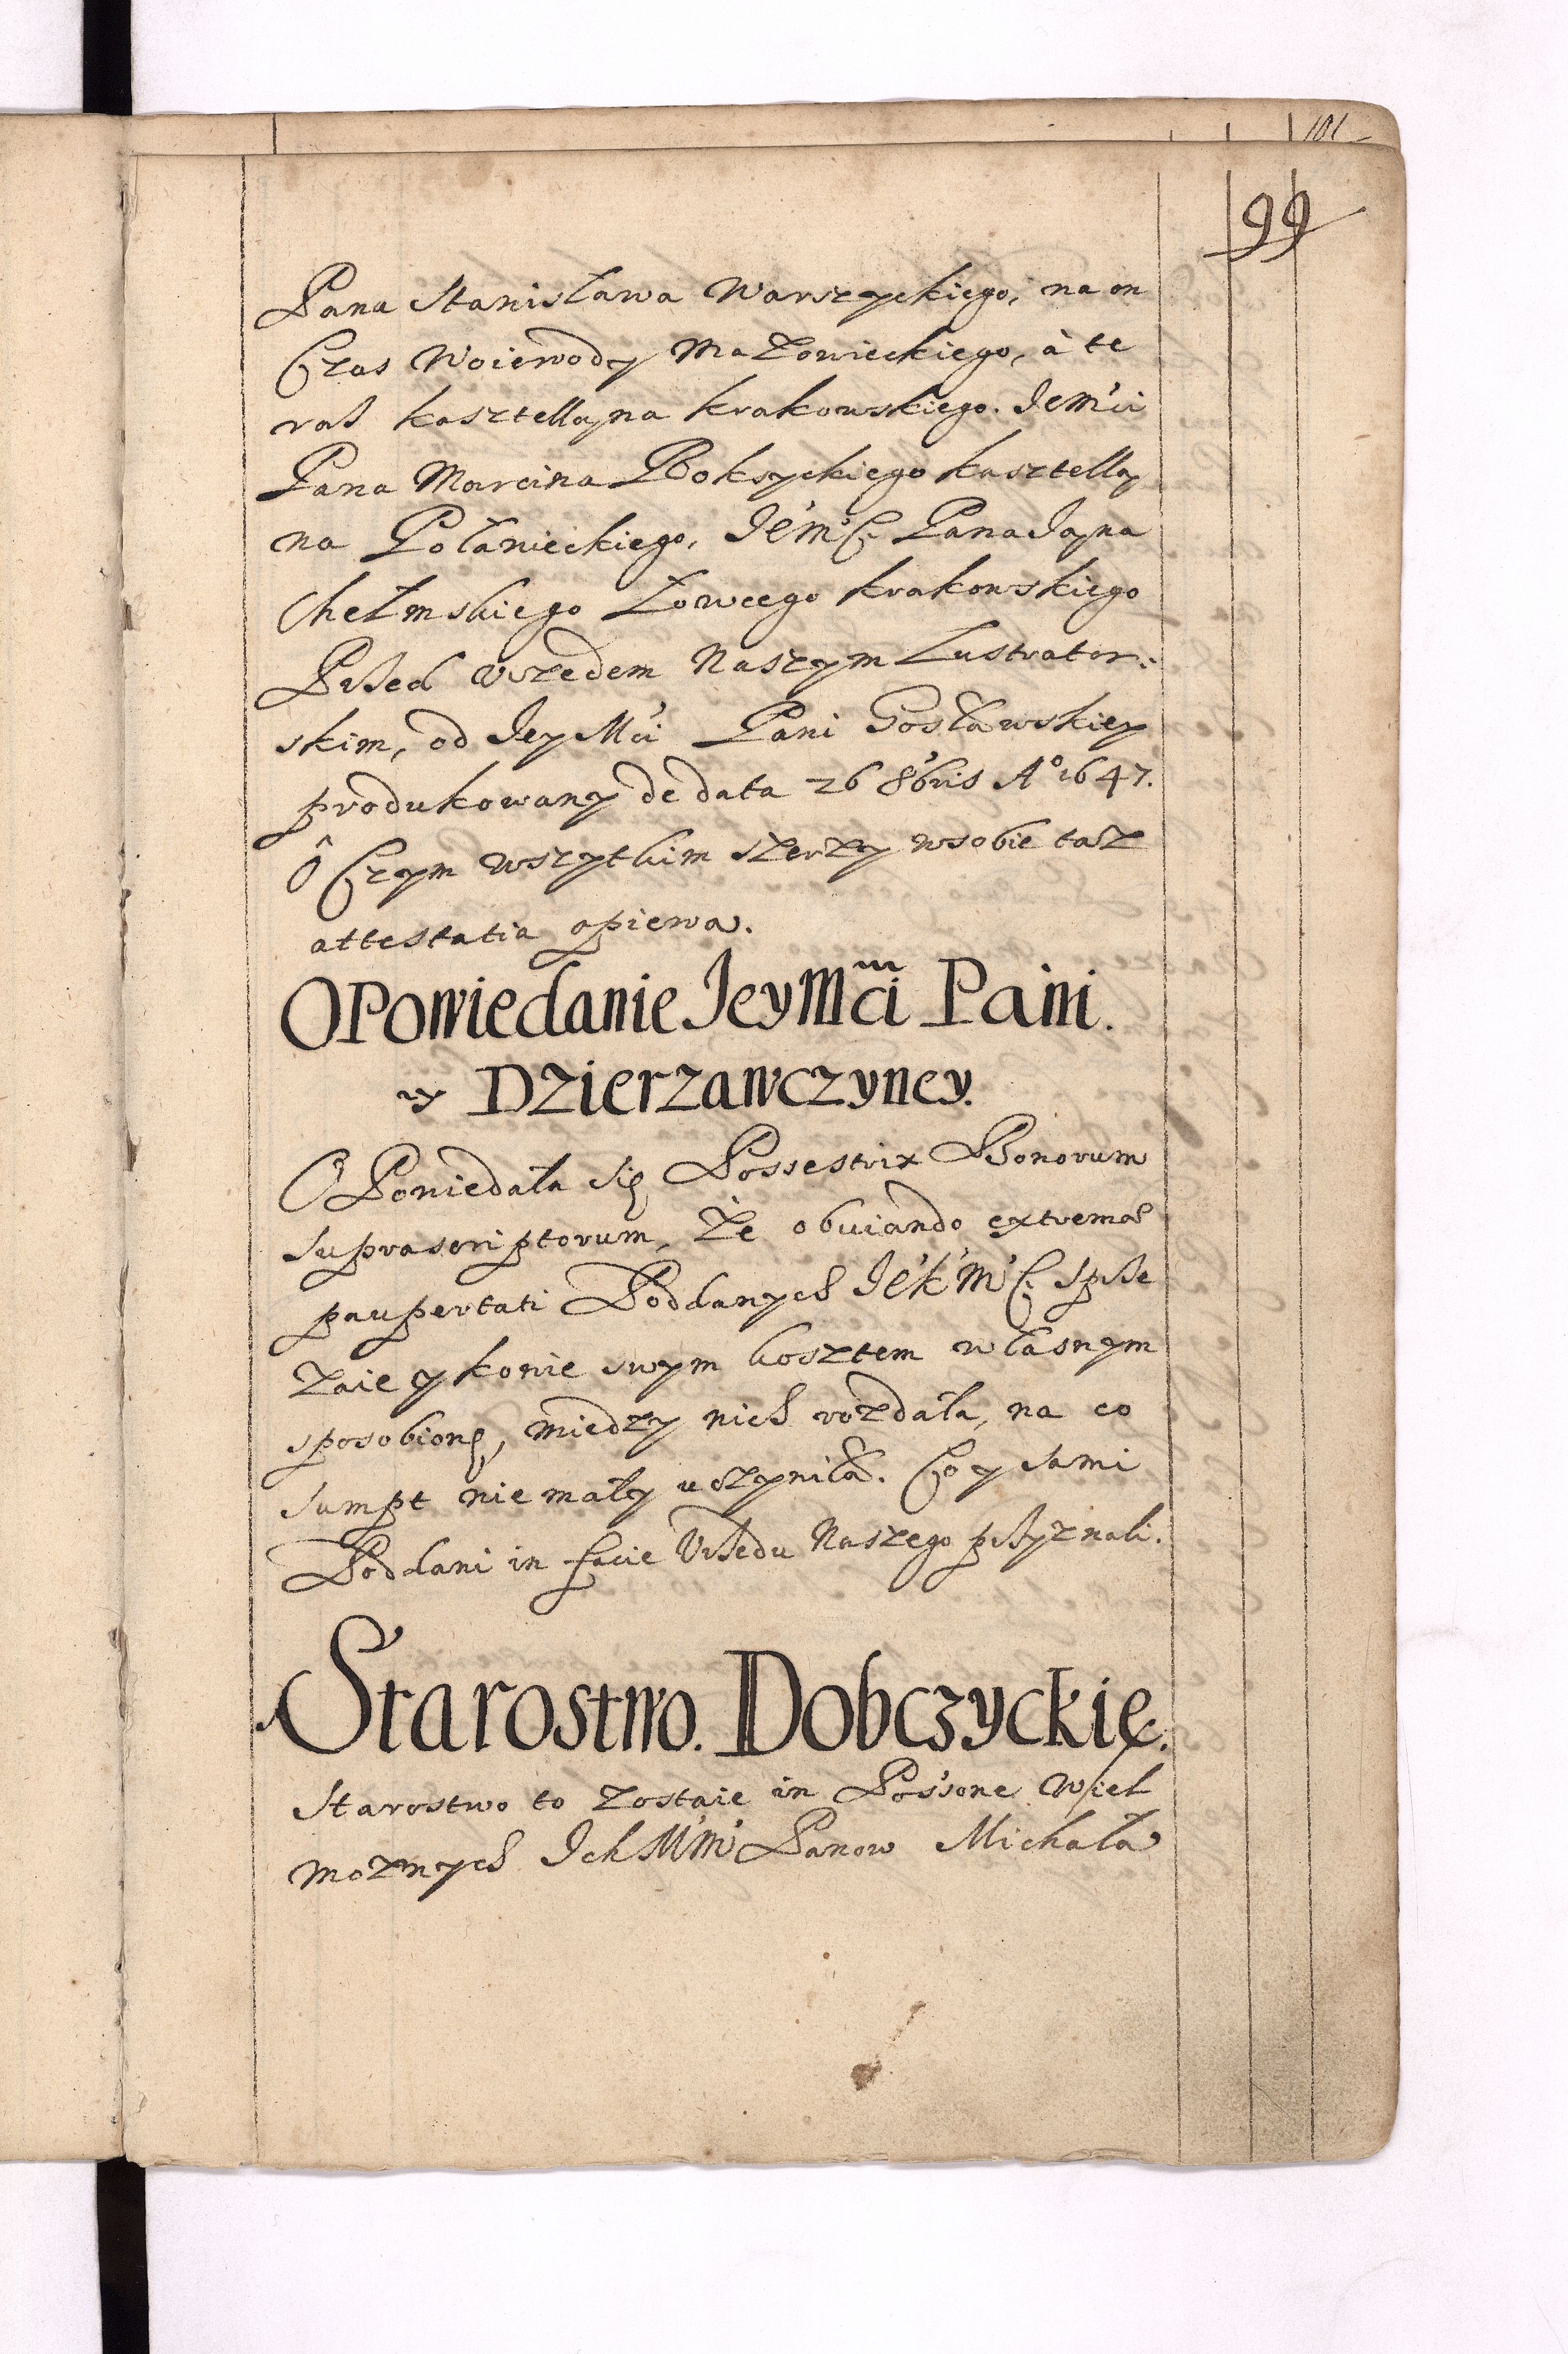 101
99
Pana Stanisława Warszyckiego, na on
Czas Woiewody Mazowieckiego, à te
raz kasztellana krakowskiego. Jem̃ci
Pana Marcina Boksyckiego kasztella
na Połanieckiego, Je'm'C. Pana Jana
Chełmskiego Łowcego krakowskiego
Przed Vrzedem Naszym Lustrator:
skim, od Jey Mci Pani Gosławskiey
produkowany de data 26 8bris A° 1647.
ô Czym wszytkim szerzy w sobie taż
attestatia opiewa.
Opowiedanie Jey Mci Pani.
Dzierzawczyney.
OPowiedała się Possestrix Bonorum
suprascriptorum, Że obuiando extremae
paupertati Poddanych Je'k'm'C. sprze
żaie y konie swym kosztem własnym
sposobione, miedzy nich rozdała, na co
sumpt nie mały uczyniła. Co y sami
Poddani in facie Vrzedu Naszego przyznali.
Starostwo. Dobczyckie.
Starostwo to zostaie in Poss'one Wiel
możnych Ich M'm' Panow Michała